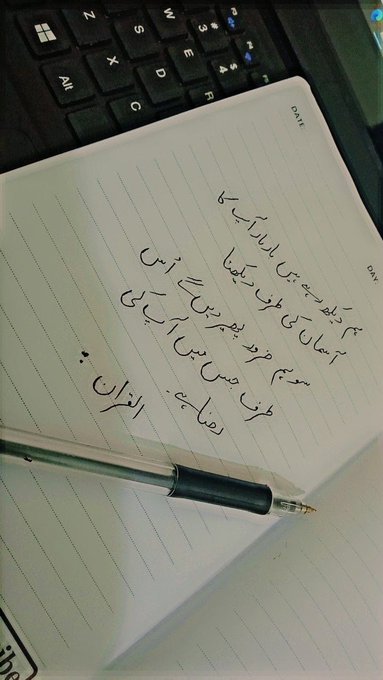 ہم دیکھ رہے ہیں بار بار آپ کا
آسمان کی طرف دیکھنا
سو ہم ضرور پھیر دیں گے اُس
طرف جس میں آپ کی
رضا ہے۔
القرآن
DATE
DAY
Alt
Z
X
C
W
S
D
E
F
R
3
4
$
F3